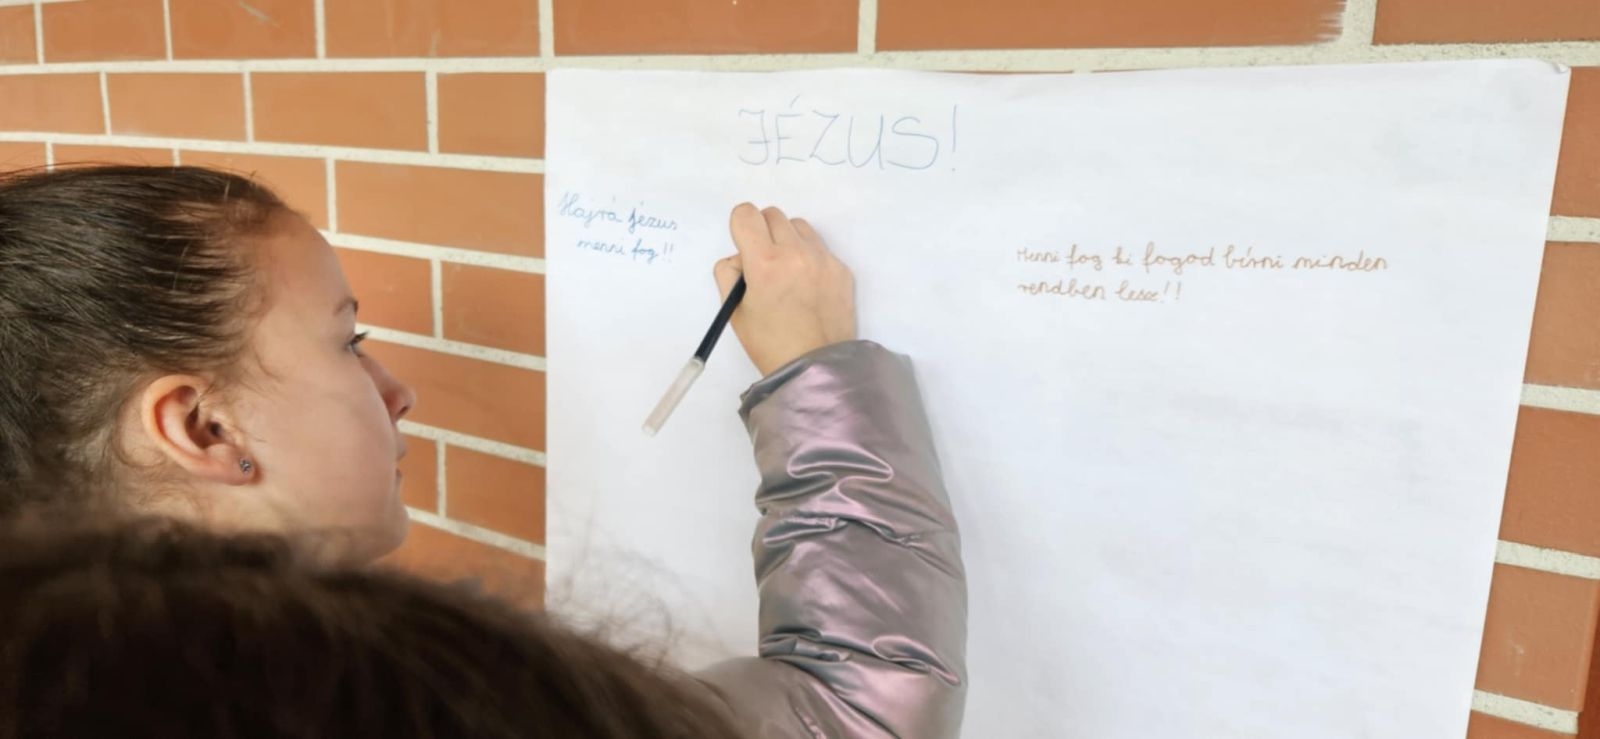 JÉZUS!
Hajrá Jézus
menni fog!!
Menni fog ki fogod bírni minden
rendben lesz!!